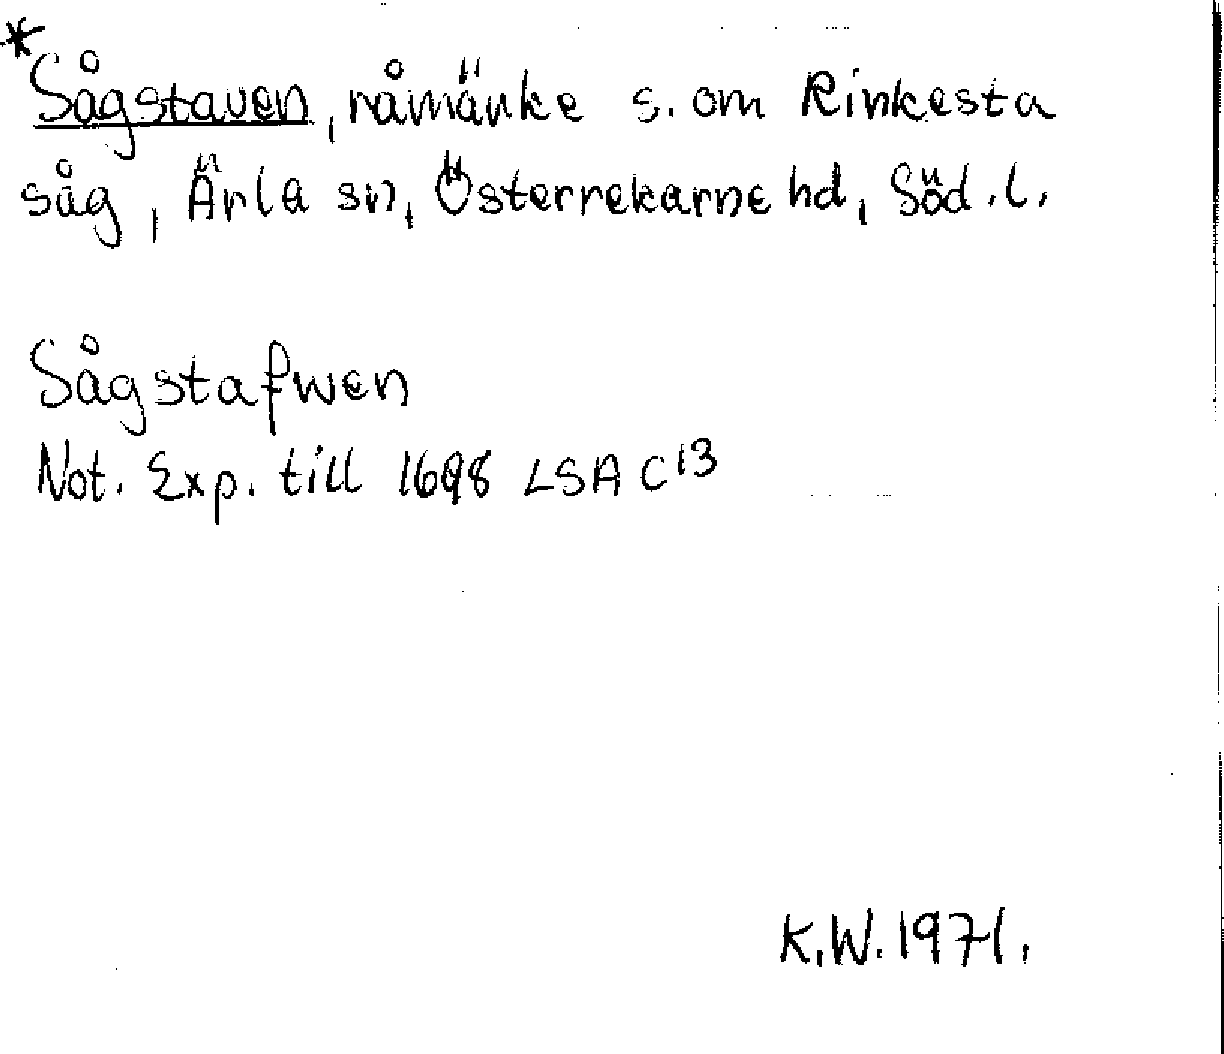 *
Sågstaven, råmänke s. om Rinkesta
såg, Ärla sn, Österrekarne hd, Söd. l.
Sågstafwen
Not. Exp. till 1698 LSA C13
K.W. 1971.